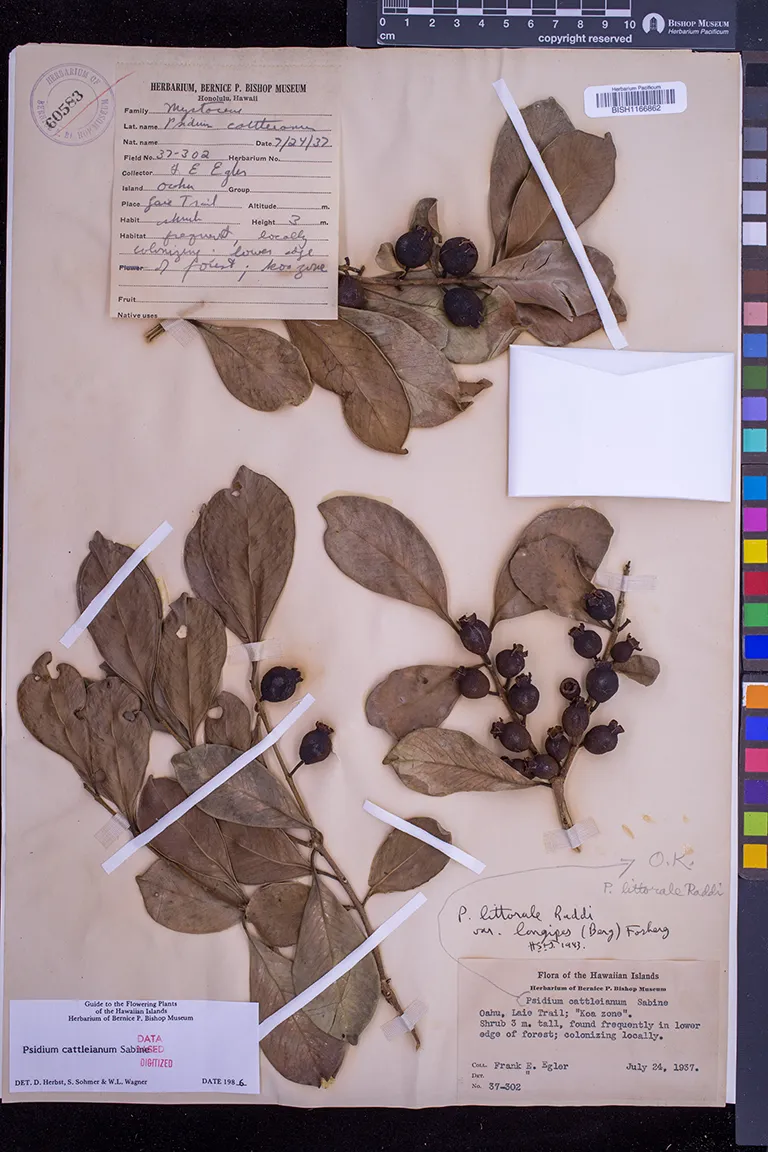 0 1 2 3 4 5 6 7 8 9 10
cm
copyright reserved
BISHOP MUSEUM
Herbarium Pacificum
HERBARIUM OF
60583
HERBARIUM, BERNICE P. BISHOP MUSEUM
Honolulu, Hawaii
Family Myrtaceae
Lat. name Psidium cattleianum
Nat. name Date 7/24/37
Field No. 37-302 Herbarium No.
Collector F E Egler
Island Oahu Group
Place Laie Trail Altitude m.
Habit shrub Height 3 m.
Habitat frequent, locally
colonizing. lower edge
Flower of forest; koa zone
Fruit
Native uses
Herbarium Pacificum
BISH1166862
O.K.
P. littorale Raddi
P. littorale Raddi
var. longipes (Berg) Fosberg
1943.
Flora of the Hawaiian Islands
Herbarium of Bernice P. Bishop Museum
Psidium cattleianum Sabine
Oahu, Laie Trail; "Koa zone".
Shrub 3 m. tall, found frequently in lower
edge of forest; colonizing locally.
Coll. Frank E. Egler July 24, 1937.
Det. "
No. 37-302
Guide to the Flowering Plants
of the Hawaiian Islands
Herbarium of Bernice P. Bishop Museum
DATA
BASED
Psidium cattleianum Sabine
DIGITIZED
DET. D. Herbst, S. Sohmer & W.L. Wagner DATE 1986.